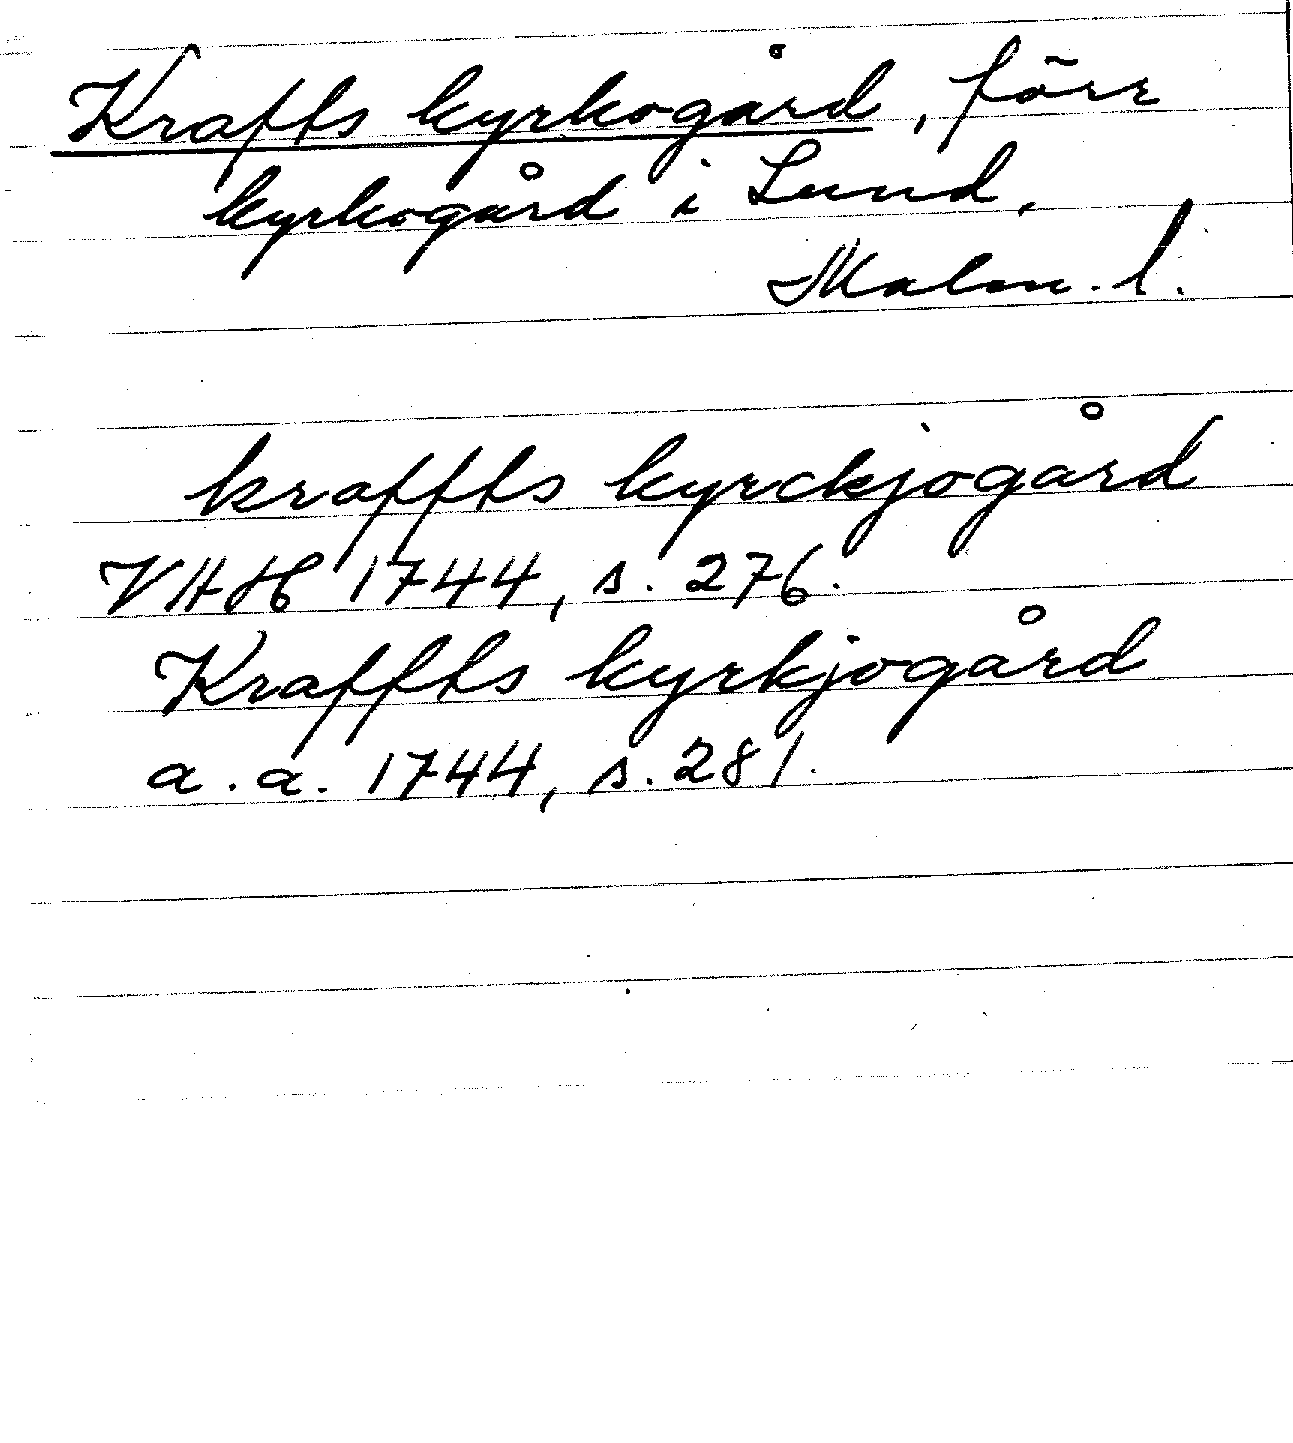 Krafts kyrkogård, förr
kyrkogård i Lund,
Malm. l.
kraffts kyrckjogård
VHH 1744, s. 276.
Kraffts kyrkjogård
a.a. 1744, s. 281.